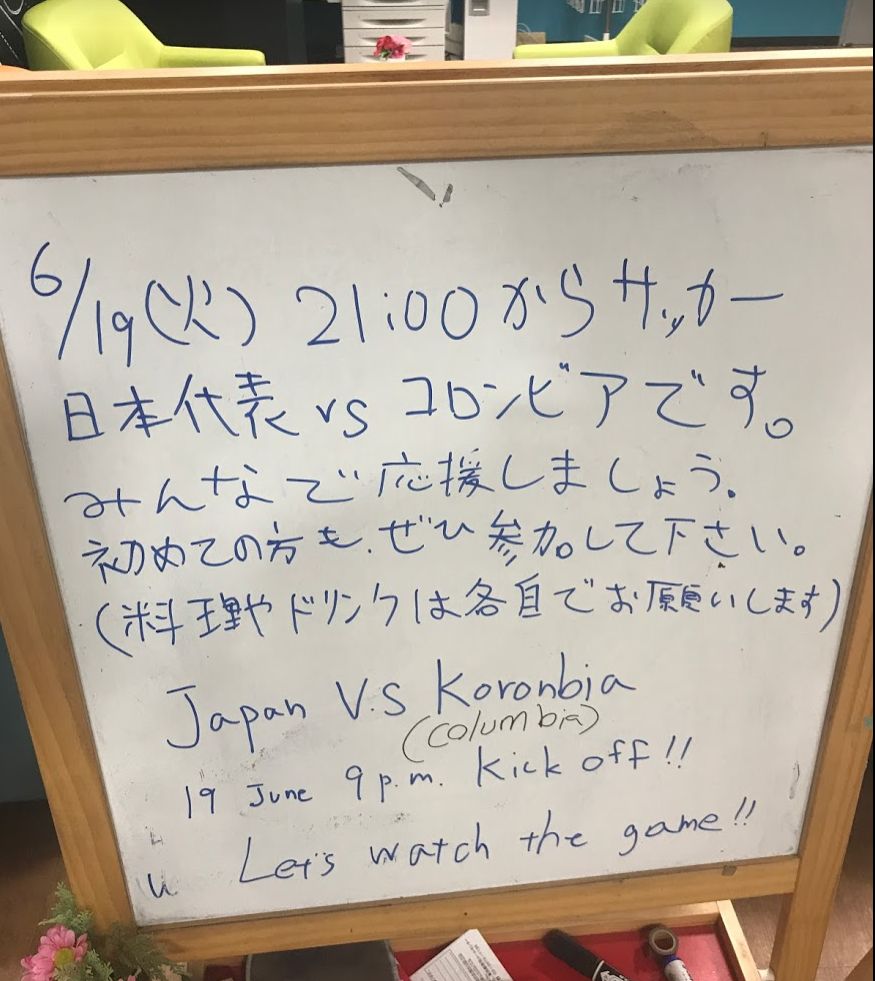 6/19(火) 21:00からサッカー
日本代表 vs コロンビアです。
みんなで応援しましょう。
初めての方も、ぜひ参加して下さい。
(料理やドリンクは各自でお願いします)
Japan V.S Koronbia
(columbia)
19 June 9 p.m. Kick off!!
Let's watch the game!!